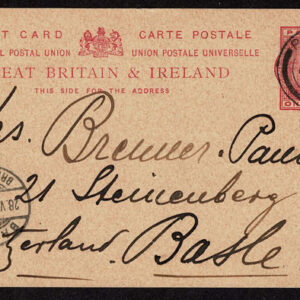 ST CARD CARTE POSTALE
L POSTAL UNION UNION POSTALE UNIVERSELLE
EAT BRITAIN & IRELAND
THIS SIDE FOR THE ADDRESS
rs. Brenner. Pau
21 Steinenberg
tzerland. Basle
28.V